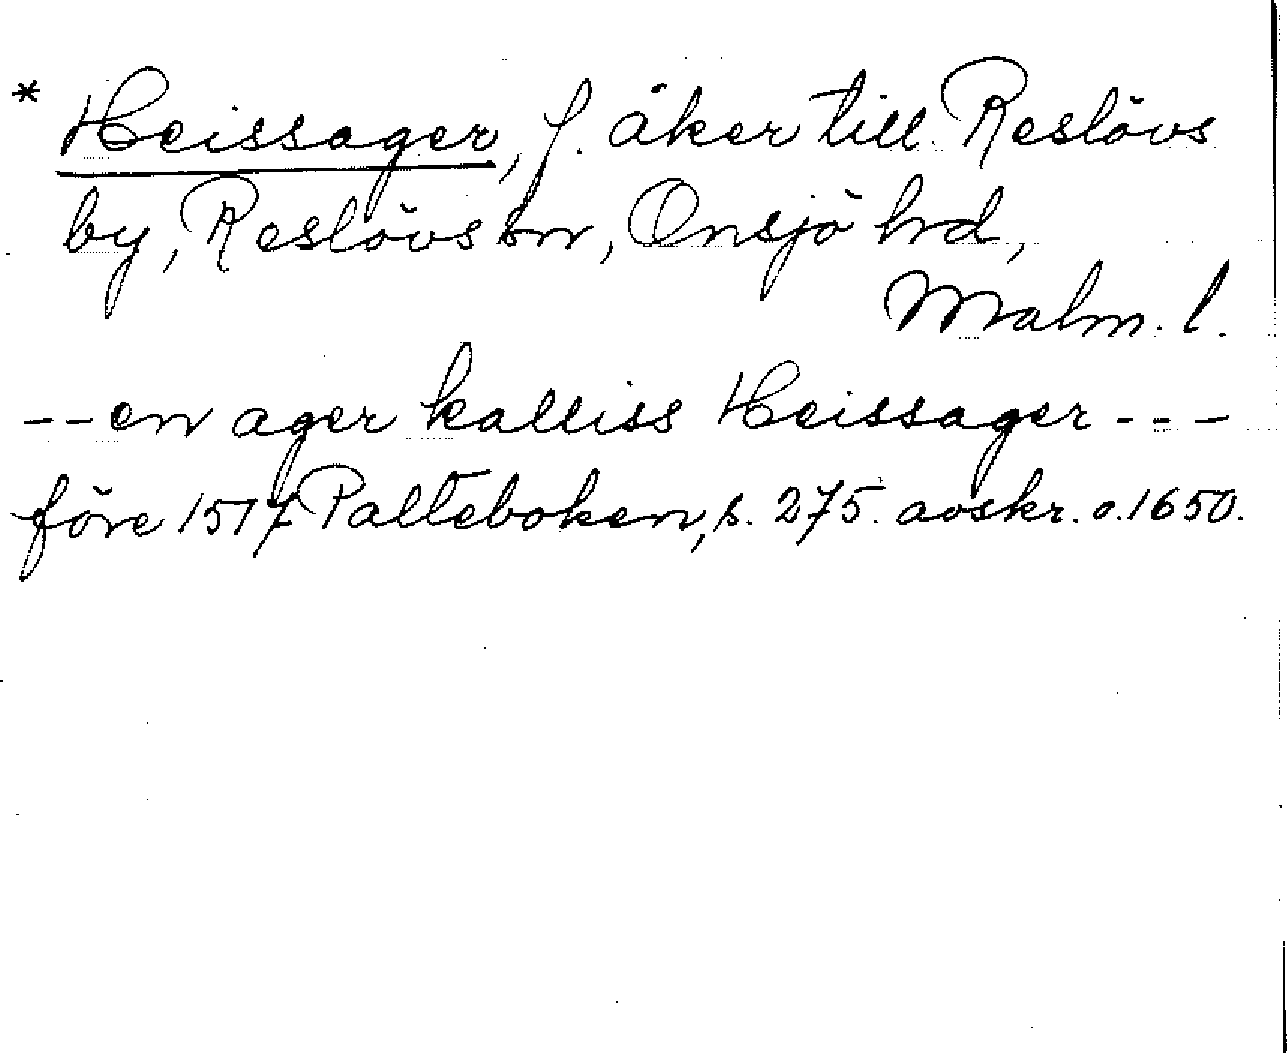 * Heissager, f. åker till Reslövs
by, Reslövs sn, Onsjö hd,
Malm. l.
-- en ager kalliss Heissager ---
före 1517 Palteboken, s. 275. avskr. o. 1650.